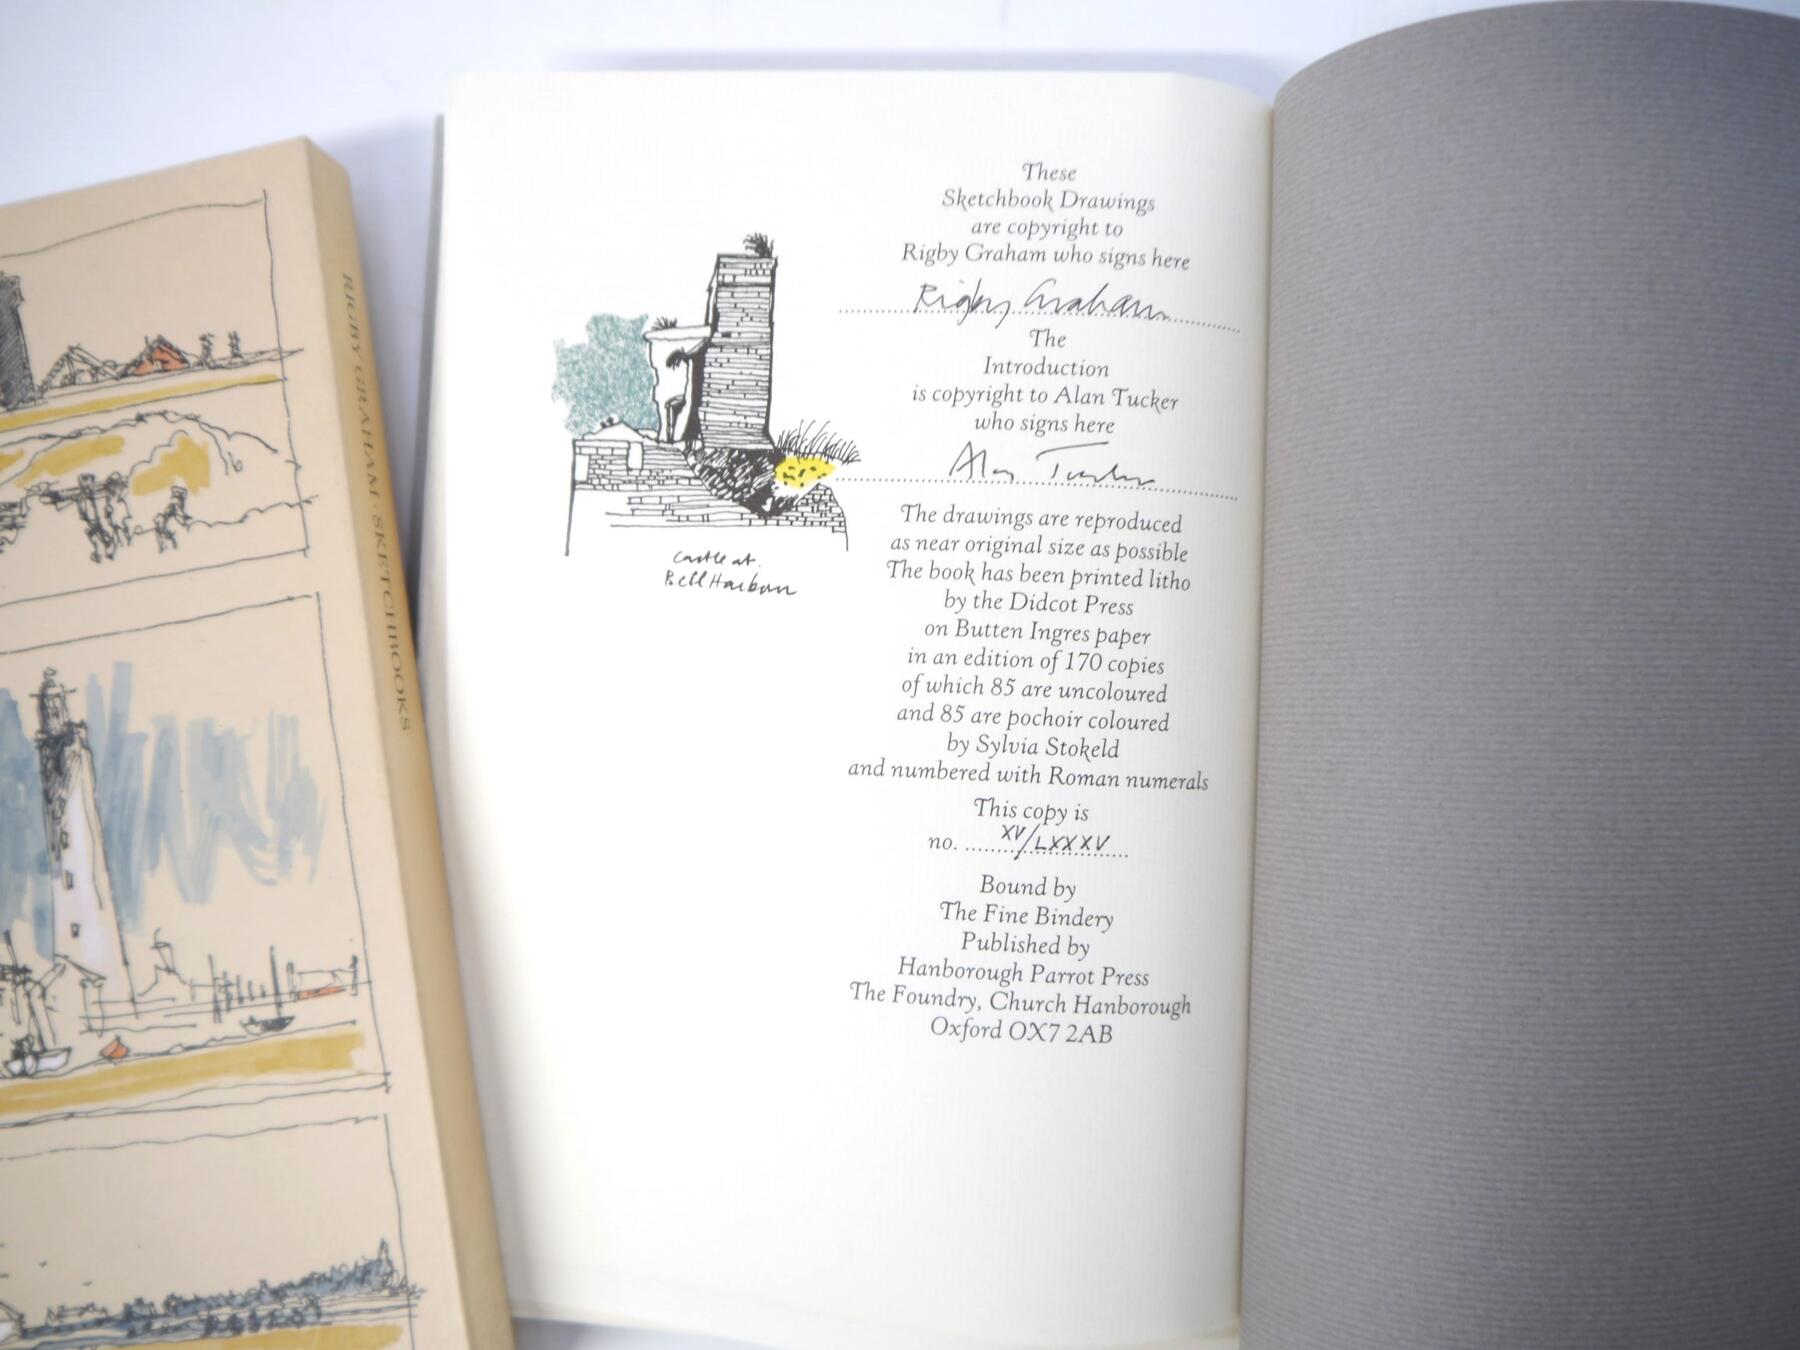 RIGBY GRAHAM · SKETCHBOOKS
These
Sketchbook Drawings
are copyright to
Rigby Graham who signs here
Rigby Graham
The
Introduction
is copyright to Alan Tucker
who signs here
Alan Tucker
Castle at
Bell Harbour
The drawings are reproduced
as near original size as possible
The book has been printed litho
by the Didcot Press
on Butten Ingres paper
in an edition of 170 copies
of which 85 are uncoloured
and 85 are pochoir coloured
by Sylvia Stokeld
and numbered with Roman numerals
This copy is
no. XV/LXXXV
Bound by
The Fine Bindery
Published by
Hanborough Parrot Press
The Foundry, Church Hanborough
Oxford OX7 2AB